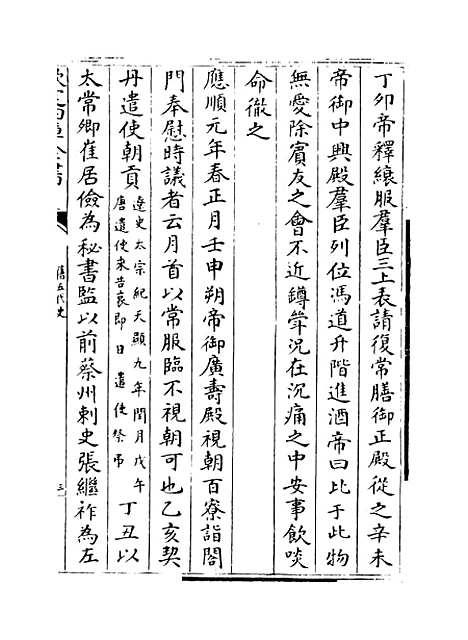 丁卯帝釋縗服羣臣三上表請復常膳御正殿從之辛未
帝御中興殿羣臣列位馮道升階進酒帝曰比于此物
無愛除賓友之會不近罇斚況在沉痛之中安事飲啖
命徹之
應順元年春正月壬申朔帝御廣壽殿視朝百寮詣閤
門奉慰時議者云月首以常服臨不視朝可也乙亥契
丹遣使朝貢遼史太宗紀天顯九年閏月戊午唐遣使來告哀即日遣使祭弔丁丑以
太常卿崔居儉為秘書監以前蔡州刺史張繼祚為左
舊五代史
三